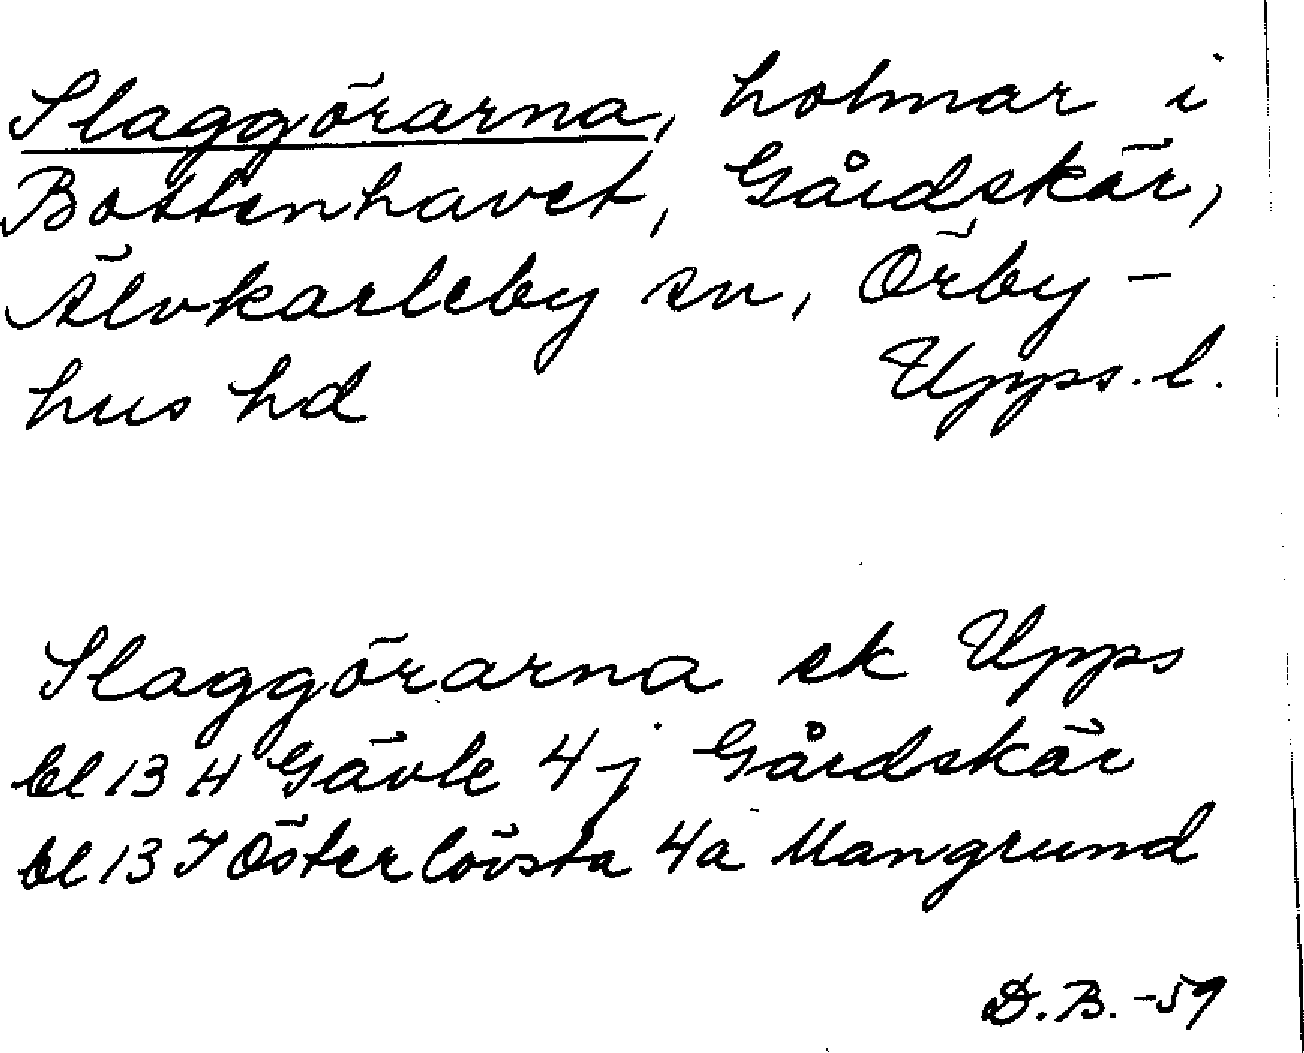 Slaggörarna, holmar i
Bottenhavet, Gårdskär,
Älvkarleby sn, Örby-
hus hd Upps. l.
Slaggörarna ek Upps
bl 13 H Gävle 4 j Gårdskär
bl 13 I Österlövsta 4a Mangrund
D.B. -59